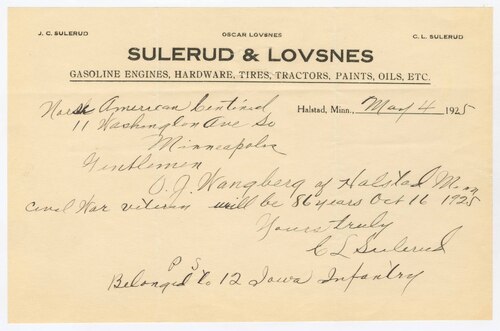 J. C. SULERUD OSCAR LOVSNES C. L. SULERUD
SULERUD & LOVSNES
GASOLINE ENGINES, HARDWARE, TIRES, TRACTORS, PAINTS, OILS, ETC.
Norse American Centinel Halstad, Minn., May 4 1925
11 Washington Ave So
Minneapolis
Gentlemen
O. J. Wangberg of Halstad Minn
Civil War vitern will be 86 years Oct 16 1925
Yours truly
C L Sulerud
P S
Belonged to 12 Iowa Infantry